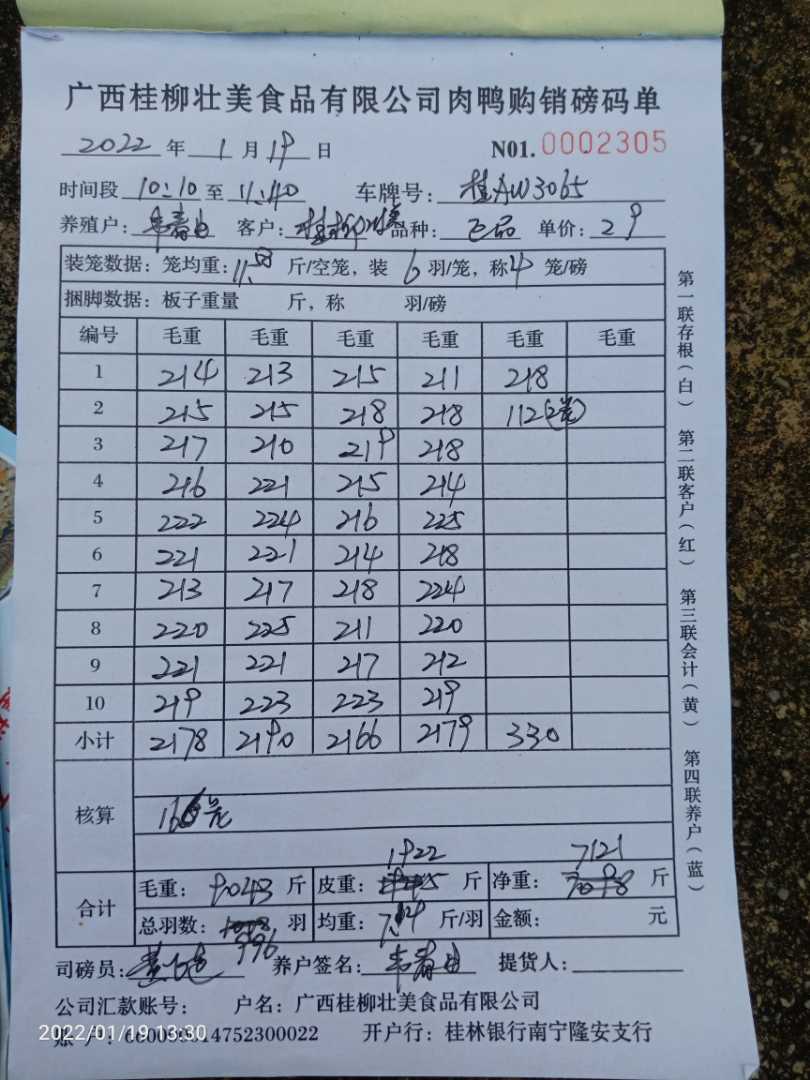 广西桂柳壮美食品有限公司肉鸭购销磅码单
2022 年 1 月 19 日 N01. 0002305
时间段 10:10 至 11:40 车牌号: 桂AW3065
养殖户: 韦春由 客户: 品种: 单价: 29
装笼数据: 笼均重: 11.58 斤/空笼, 装 6 羽/笼, 称 4 笼/磅
捆脚数据: 板子重量 斤, 称 羽/磅
编号 毛重 毛重 毛重 毛重 毛重 毛重
1 214 213 215 211 218
2 215 215 218 218 112(2笼)
3 217 210 219 218
4 216 221 215 214
5 222 224 216 225
6 221 221 214 218
7 213 217 218 224
8 220 225 211 220
9 221 221 217 212
10 219 223 223 219
小计 2178 2190 2166 2179 330
核算 166笼
1922 7121
合计 毛重: 9043 斤 皮重: 斤 净重: 斤
总羽数: 996 羽 均重: 斤/羽 金额: 元
司磅员: 养户签名: 韦春由 提货人:
公司汇款账号: 户名: 广西桂柳壮美食品有限公司
账户: 开户行: 桂林银行南宁隆安支行
2022/01/19 13:30
第一联存根(白) 第二联客户(红) 第三联会计(黄) 第四联养户(蓝)